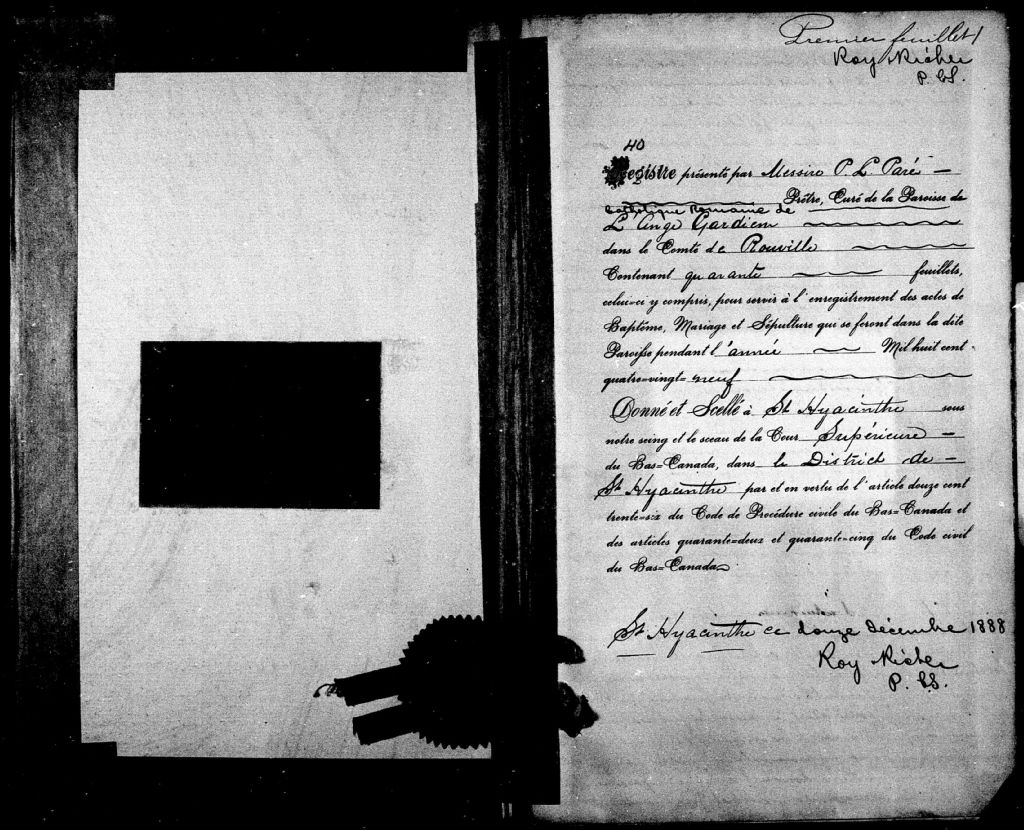 Premier feuillet 1
Roy & Richer
P. C. S.
40
Registre présenté par Messire P. L. Paré
Prêtre, Curé de la Paroisse de
Catholique Romaine de
L'Ange Gardien
dans le Comté de Rouville
Contenant quarante feuillets,
celui-ci y compris, pour servir à l'enregistrement des actes de
Baptême, Mariage et Sépulture qui se feront dans la dite
Paroisse pendant l'année Mil huit cent
quatre-vingt-neuf
Donné et Scellé à St Hyacinthe sous
notre seing et le sceau de la Cour Supérieure
du Bas-Canada, dans le District de
St Hyacinthe par et en vertu de l'article douze cent
trente-six du Code de Procédure civile du Bas-Canada et
des articles quarante-deux et quarante-cinq du Code civil
du Bas-Canada
St Hyacinthe ce douze Décembre 1888
Roy & Richer
P. C. S.